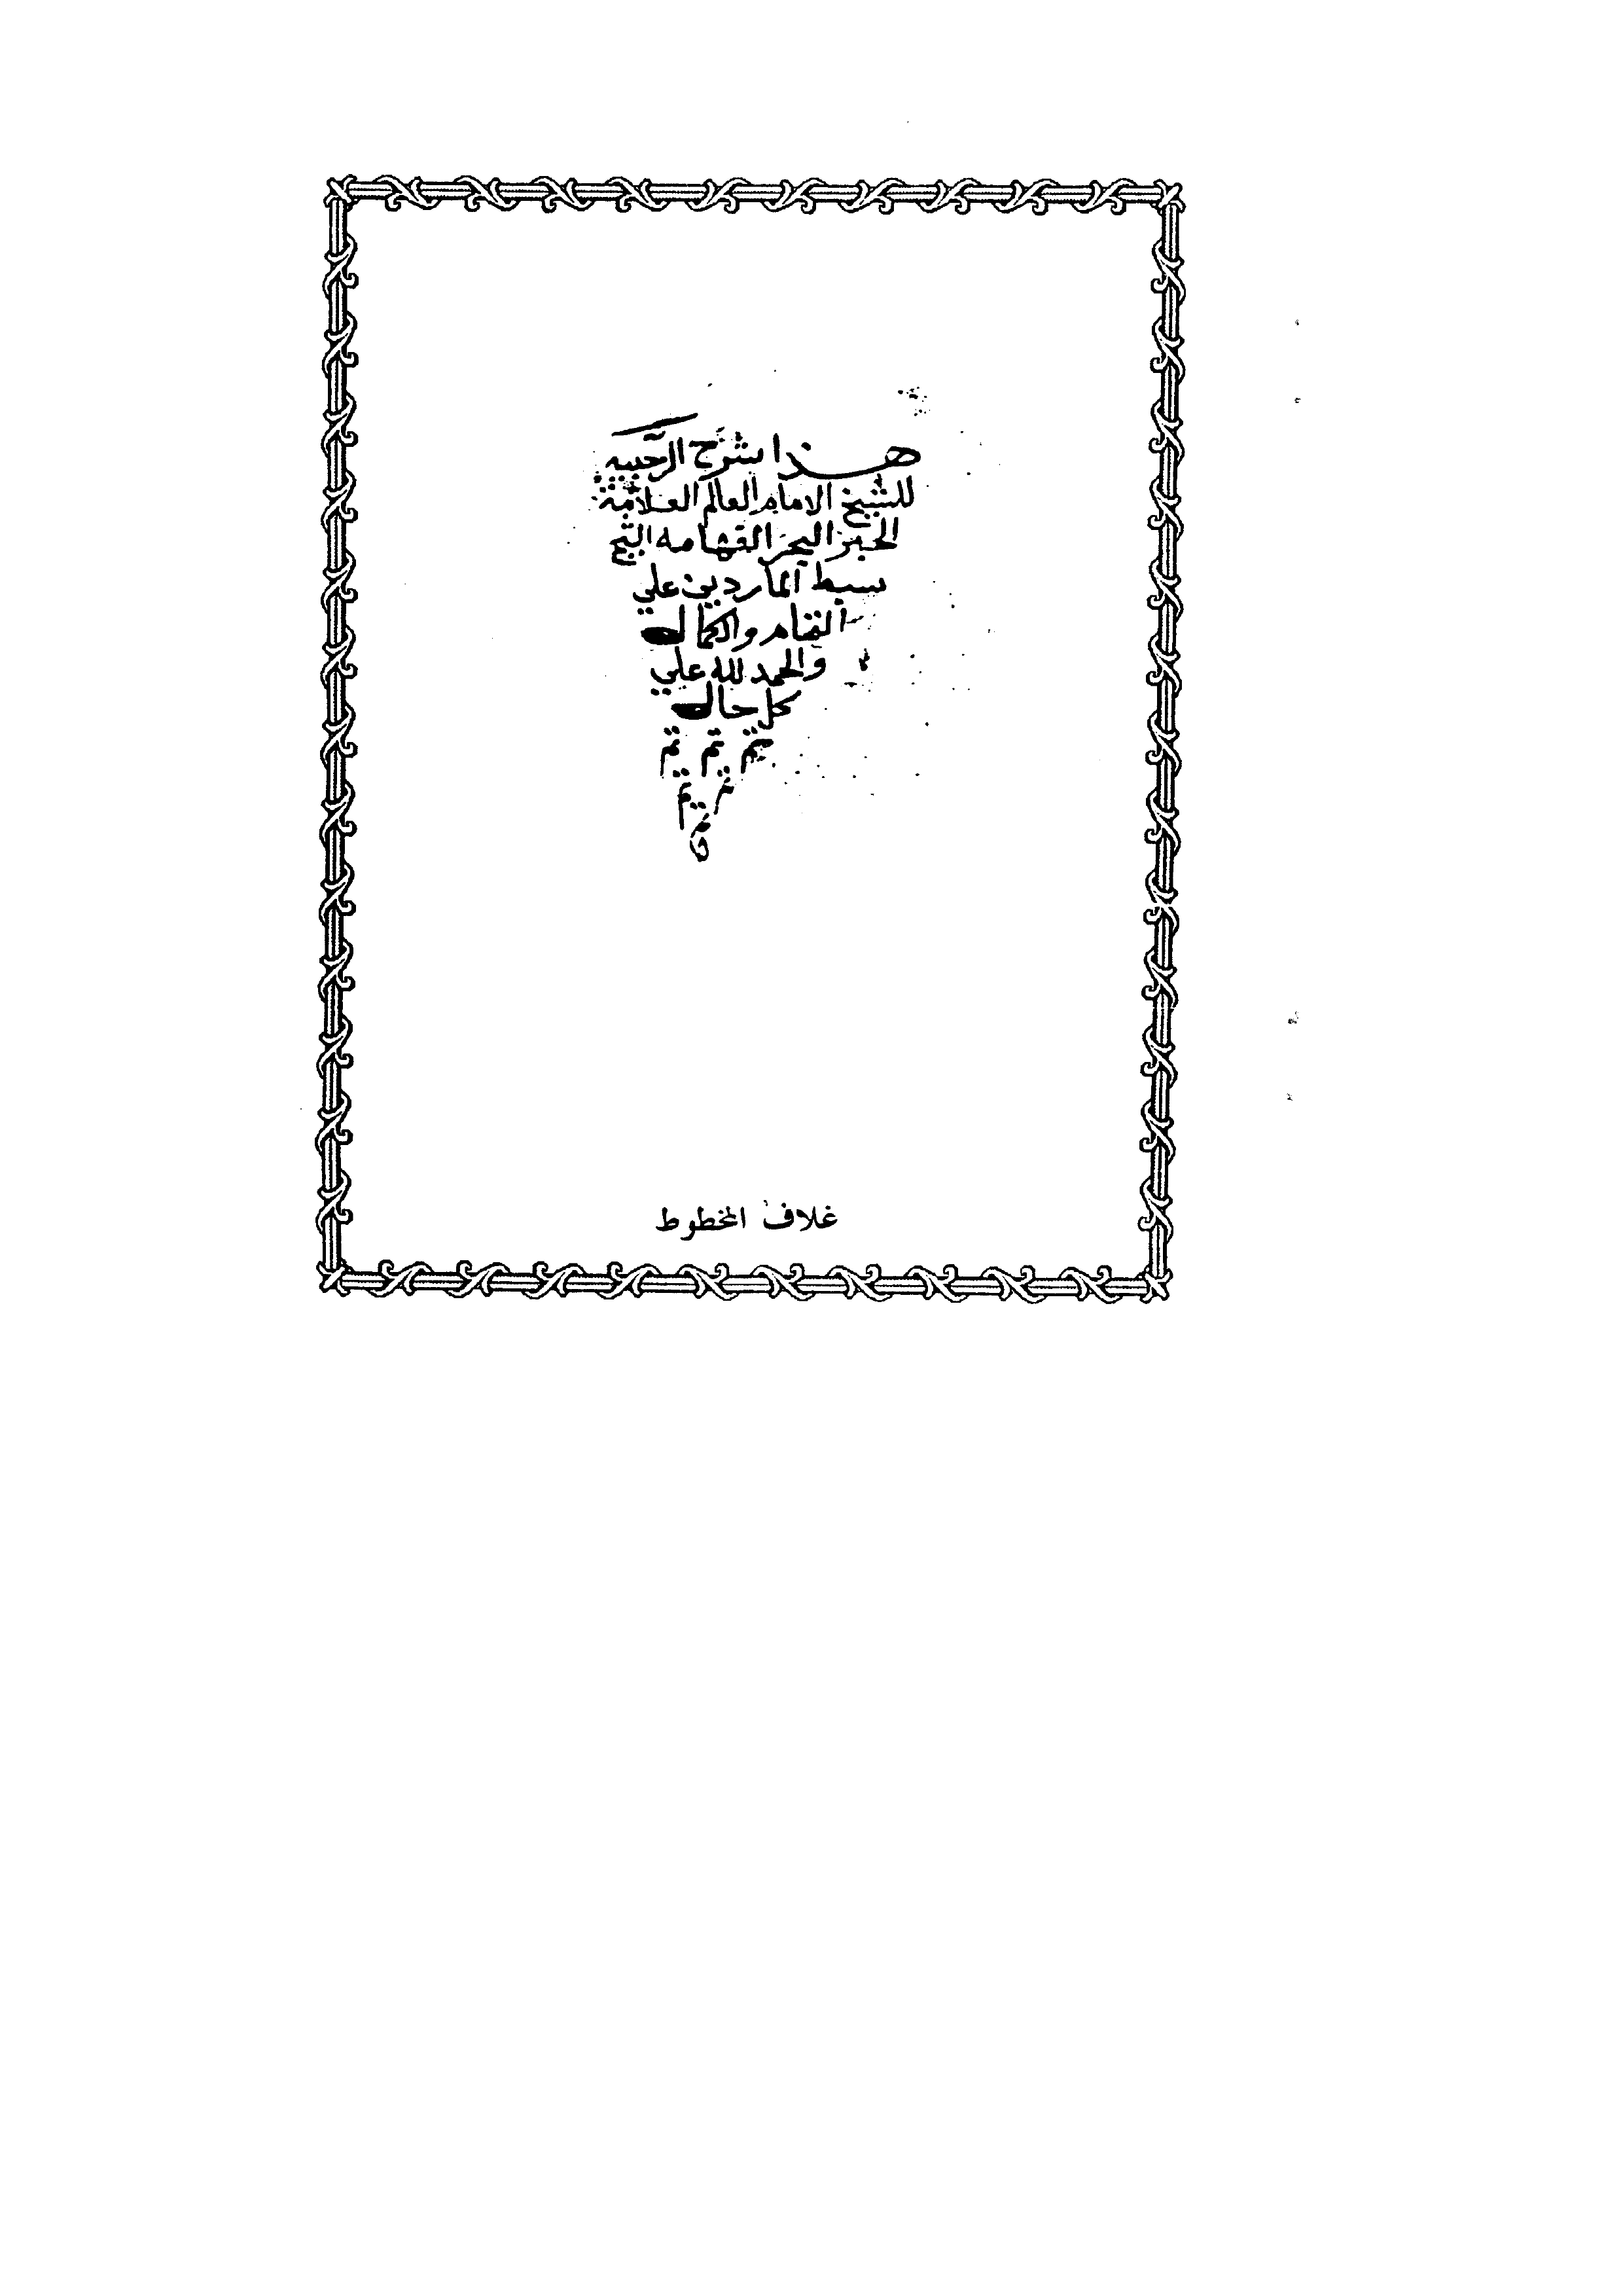 هذا شرح الرحبيه
للشيخ الامام العالم العلامة
الحبر البحر الفهامه الشيخ
سبط الماردين علي
التمام والكمال
والحمد لله علي
كل حال
تم تم تم
تم تم
غلاف المخطوط